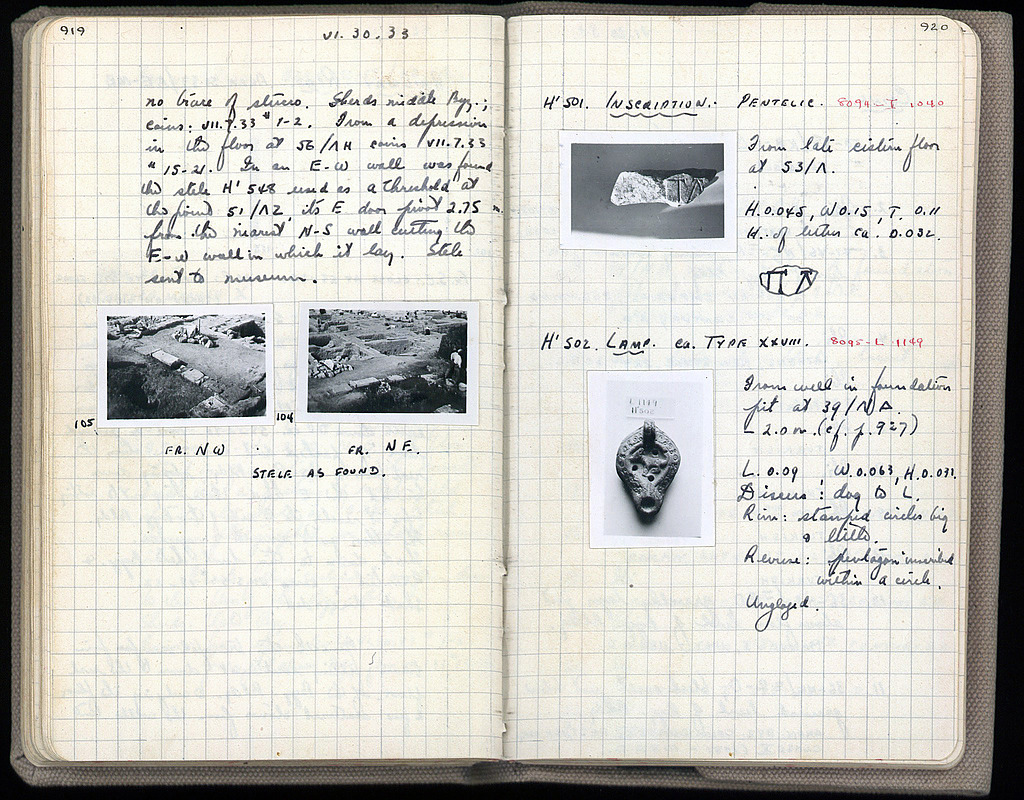 919
VI.30.33
no trace of stucco. Sherds middle Byz.;
coins: VII.7.33 # 1-2. From a depression
in the floor at 56/ΛH coins VII.7.33
" 15-21. In an E-W wall was found
the stele H' 548 used as a threshold at
the point 51/ΛZ, its E door pivot 2.75 m.
from the nearest N-S wall cutting the
E-W wall in which it lay. Stele
sent to museum.
105
104
FR. NW
FR. NE.
STELE AS FOUND.
920
H' 501. INSCRIPTION. PENTELIC. 8094-I 1040
From late cistern floor
at 53/Λ.
H. 0.045, W 0.15, T. 0.11
H. of letters ca. 0.032.
H' 502. LAMP. ca. TYPE XXVIII. 8095-L 1149
L 1149
H' 502
From well in foundation
pit at 39/ΛΔ.
-2.0 m. (cf. p. 927)
L. 0.09, W. 0.063, H. 0.031.
Discus: dog to L.
Rim: stamped circles big
& little.
Reverse: pentagon inscribed
within a circle.
Unglazed.